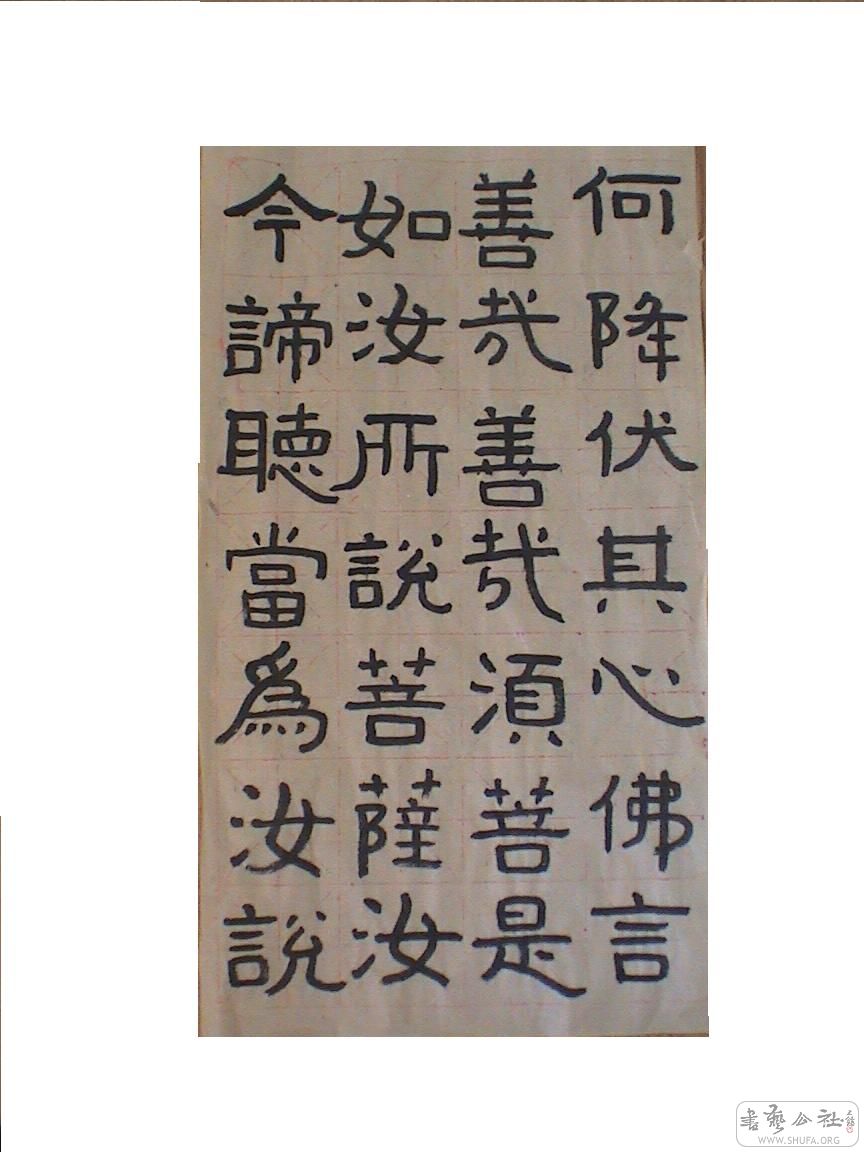 何降伏其心佛言
善哉善哉湏菩是
如汝所說菩薩汝
今諦聽當爲汝說
書藝公社
WWW.SHUFA.ORG